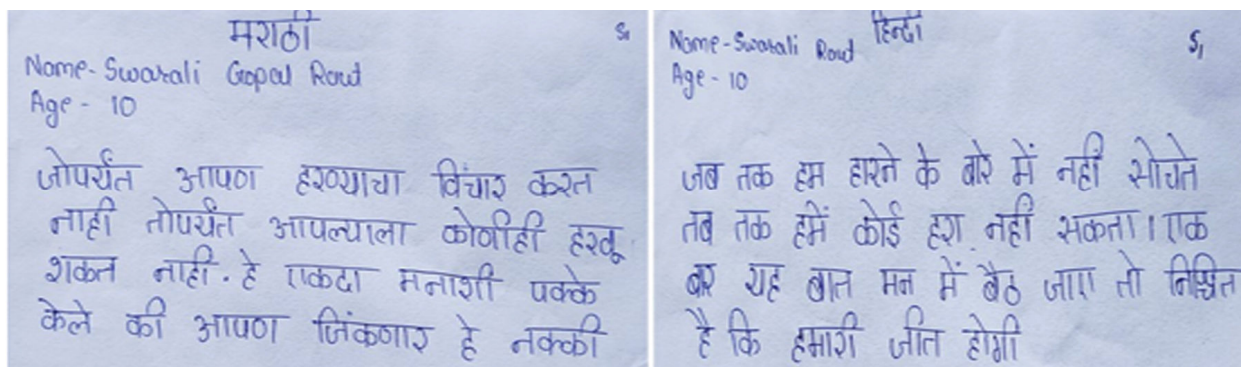 मराठी
S1
Name- Swarali Gopal Raut
Age - 10
जोपर्यंत आपण हरण्याचा विचार करत
नाही तोपर्यंत आपल्याला कोणीही हरवू
शकत नाही. हे एकदा मनाशी पक्के
केले की आपण जिंकणार हे नक्की
हिन्दी
S1
Name-Swarali Raut
Age - 10
जब तक हम हारने के बारे में नहीं सोचते
तब तक हमें कोई हरा नहीं सकता। एक
बार यह बात मन में बैठ जाए तो निश्चित
है कि हमारी जीत होगी